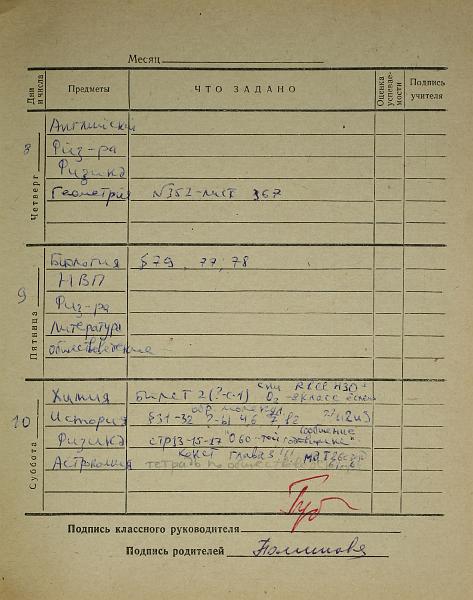 Месяц
Дни и числа Предметы ЧТО ЗАДАНО Оценка успеваемости Подпись учителя
8 Четверг
Английский
Физ-ра
Физика
Геометрия №352-лист 367
9 Пятница
Биология §79, 77, 78
НВП
Физ-ра
Литература
обществоведение
10 Суббота
Химия Билет 2 (?-с1) O₂ -8класс
История §31-32 ?-ы 4,6 7,82
Физика стр13-15-17 сообщение
Астрономия конст глава 3
тетрадь по общество
Подпись классного руководителя
Подпись родителей